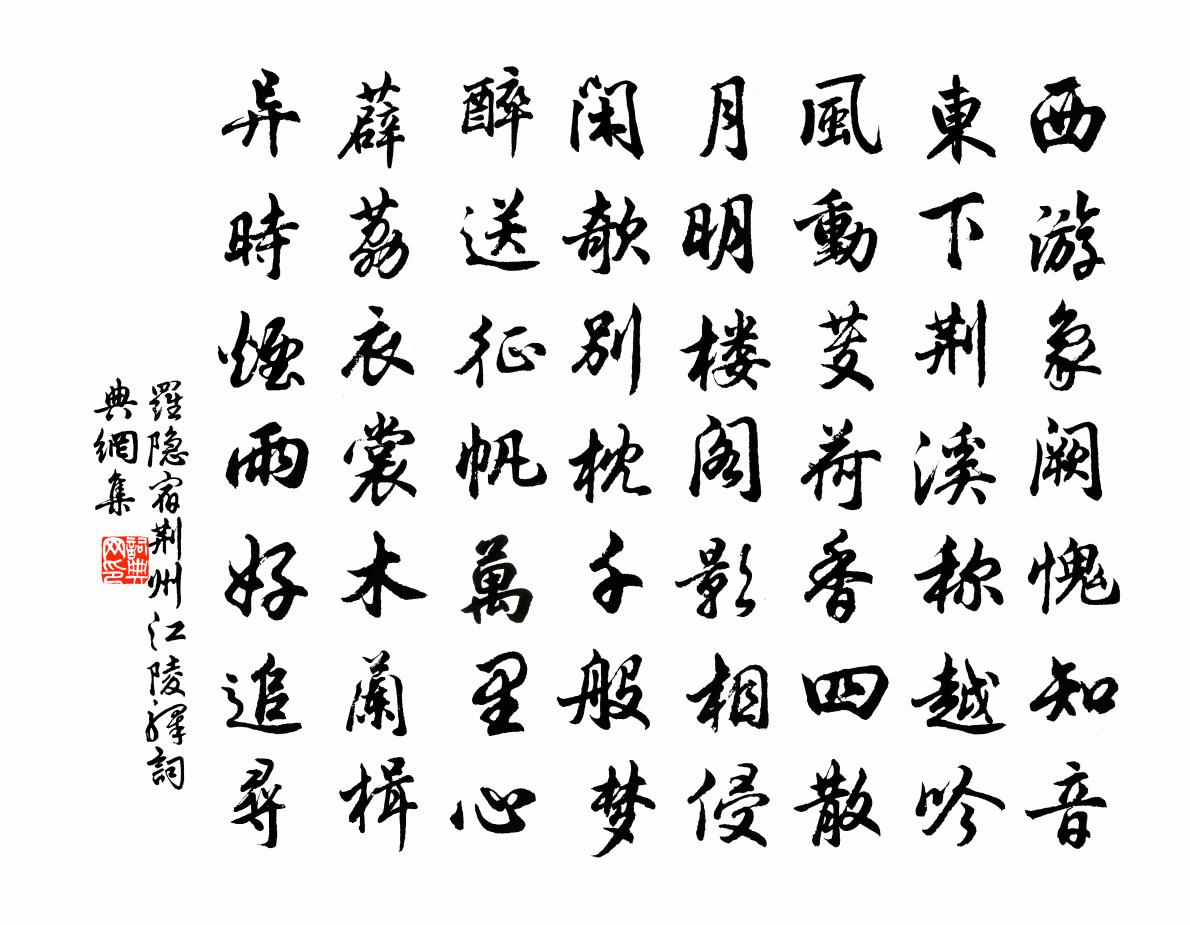 西游象阙愧知音
東下荆溪称越吟
風動芰荷香四散
月明楼阁影相侵
闲欹别枕千般梦
醉送征帆萬里心
薜荔衣裳木蘭楫
异時煙雨好追尋
羅隐宿荆州江陵驿詞
典網集
詞典网印